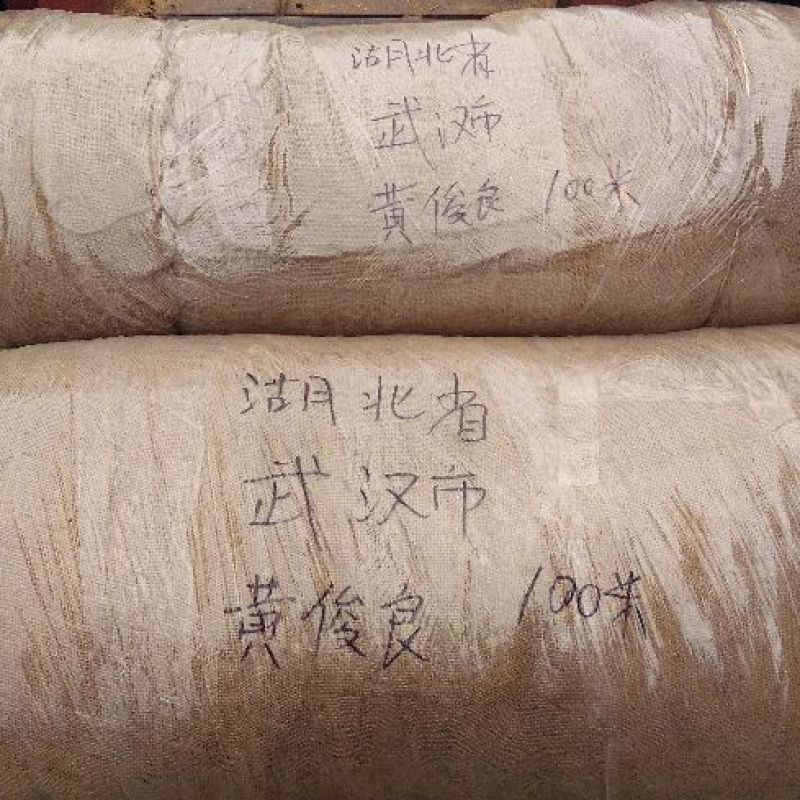 湖北省
武汉市
黄俊良 100米
湖北省
武汉市
黄俊良 100米